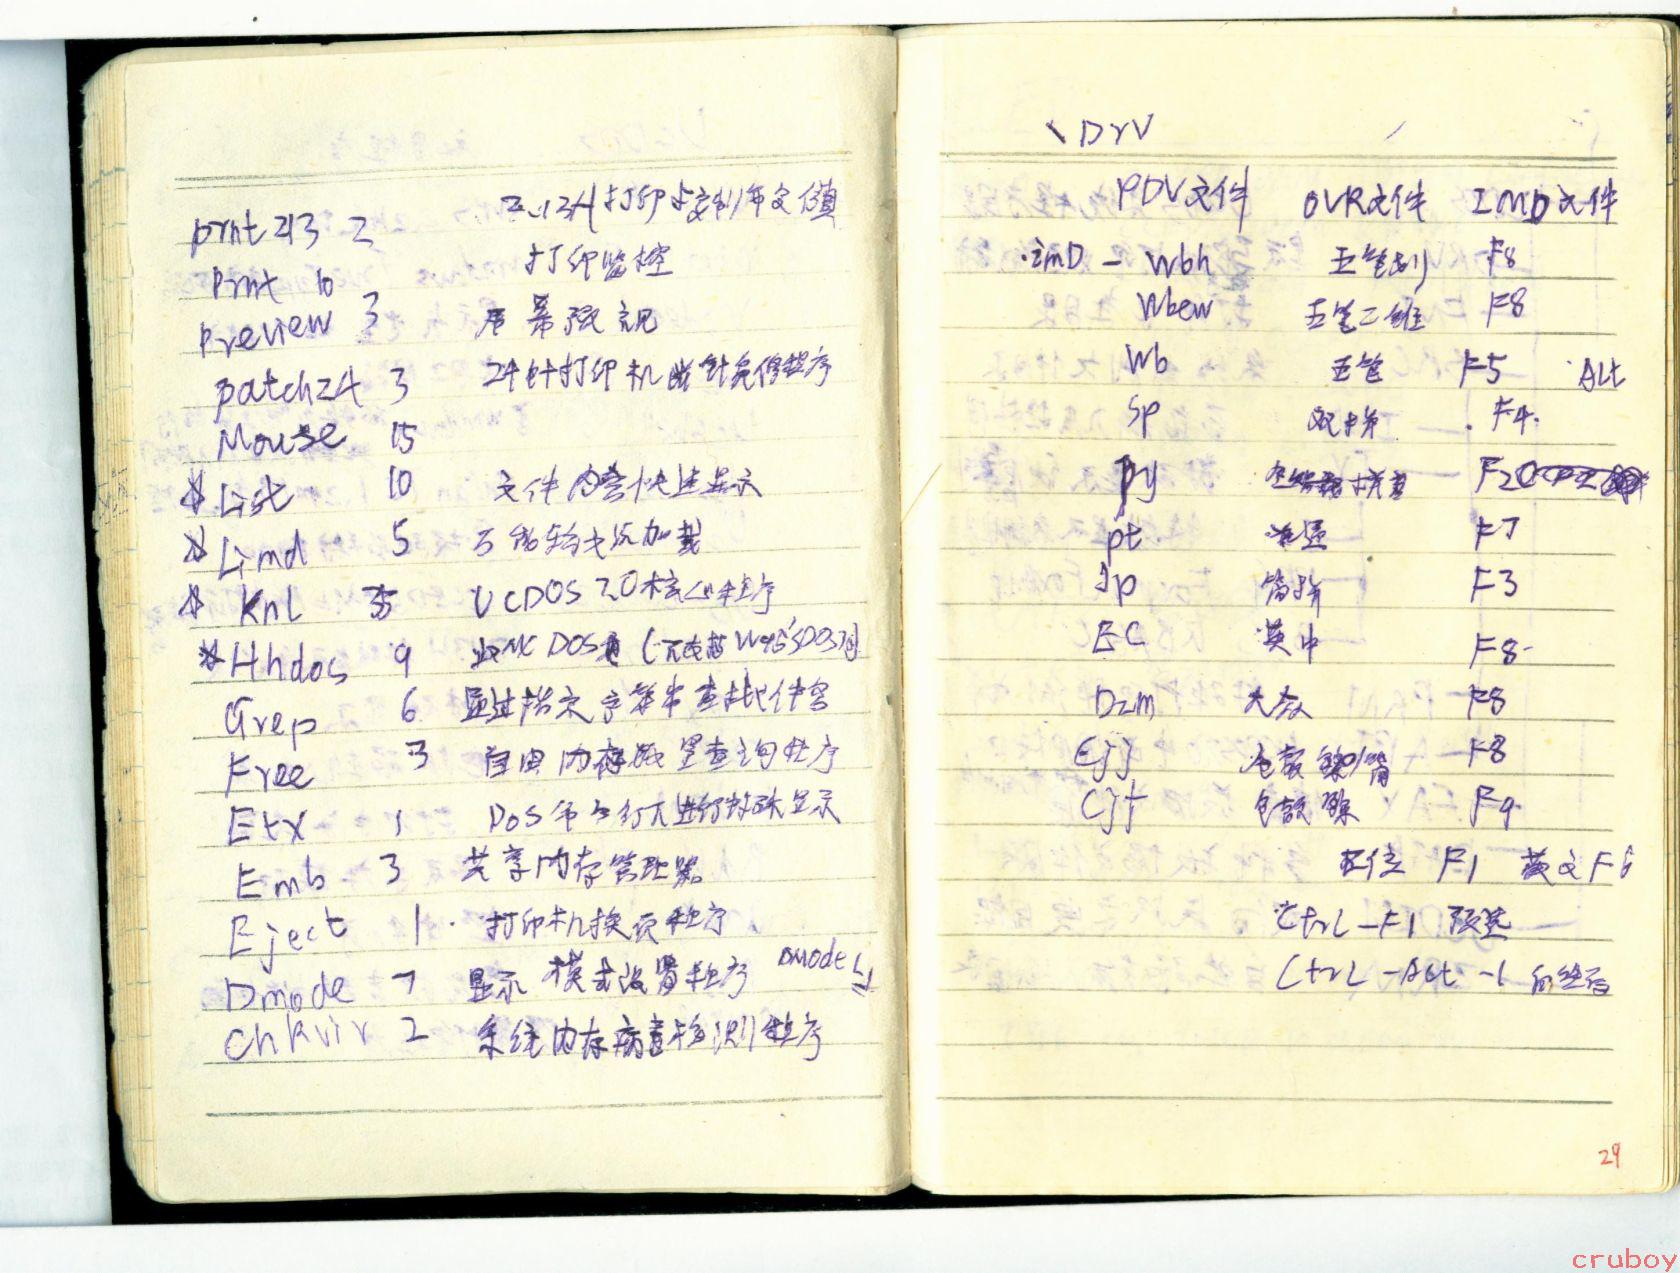 prnt213 2 打印
Prnt 10 打印监控
preview 3 屏幕预视
patch24 3 24针打印机断针免修程序
Mouse 15
List 10 文件内容快速显示
Limd 5 万能输入法加载
Knl 35 UCDOS 7.0核心程序
Hhdos 9 DOS
Grep 6 通过指定字符串查找文件名
Free 3 自由内存 查询程序
Etx 1 DOS命令行下进行特殊显示
Emb 3 共享内存管理器
Eject 1 打印机换页程序
Dmode 7 显示模式设置程序 DMODE
ChKvir 2 系统内存病毒检测程序
\Drv
PDV文件 OVR文件 IMD文件
imD - Wbh 五笔划 F8
Wbew 五笔二维 F8
Wb 五笔 F5 ALt
Sp 双拼 F4.
py 拼音 F2
pt 普通 F7
Jp 简拼 F3
EC 英中 F8
Dzm 大众 F8
Ejj F8
Cjj F9
区位 F1 英文F6
Ctrl-F1 预选
Ctrl-Alt-1
29
cruboy